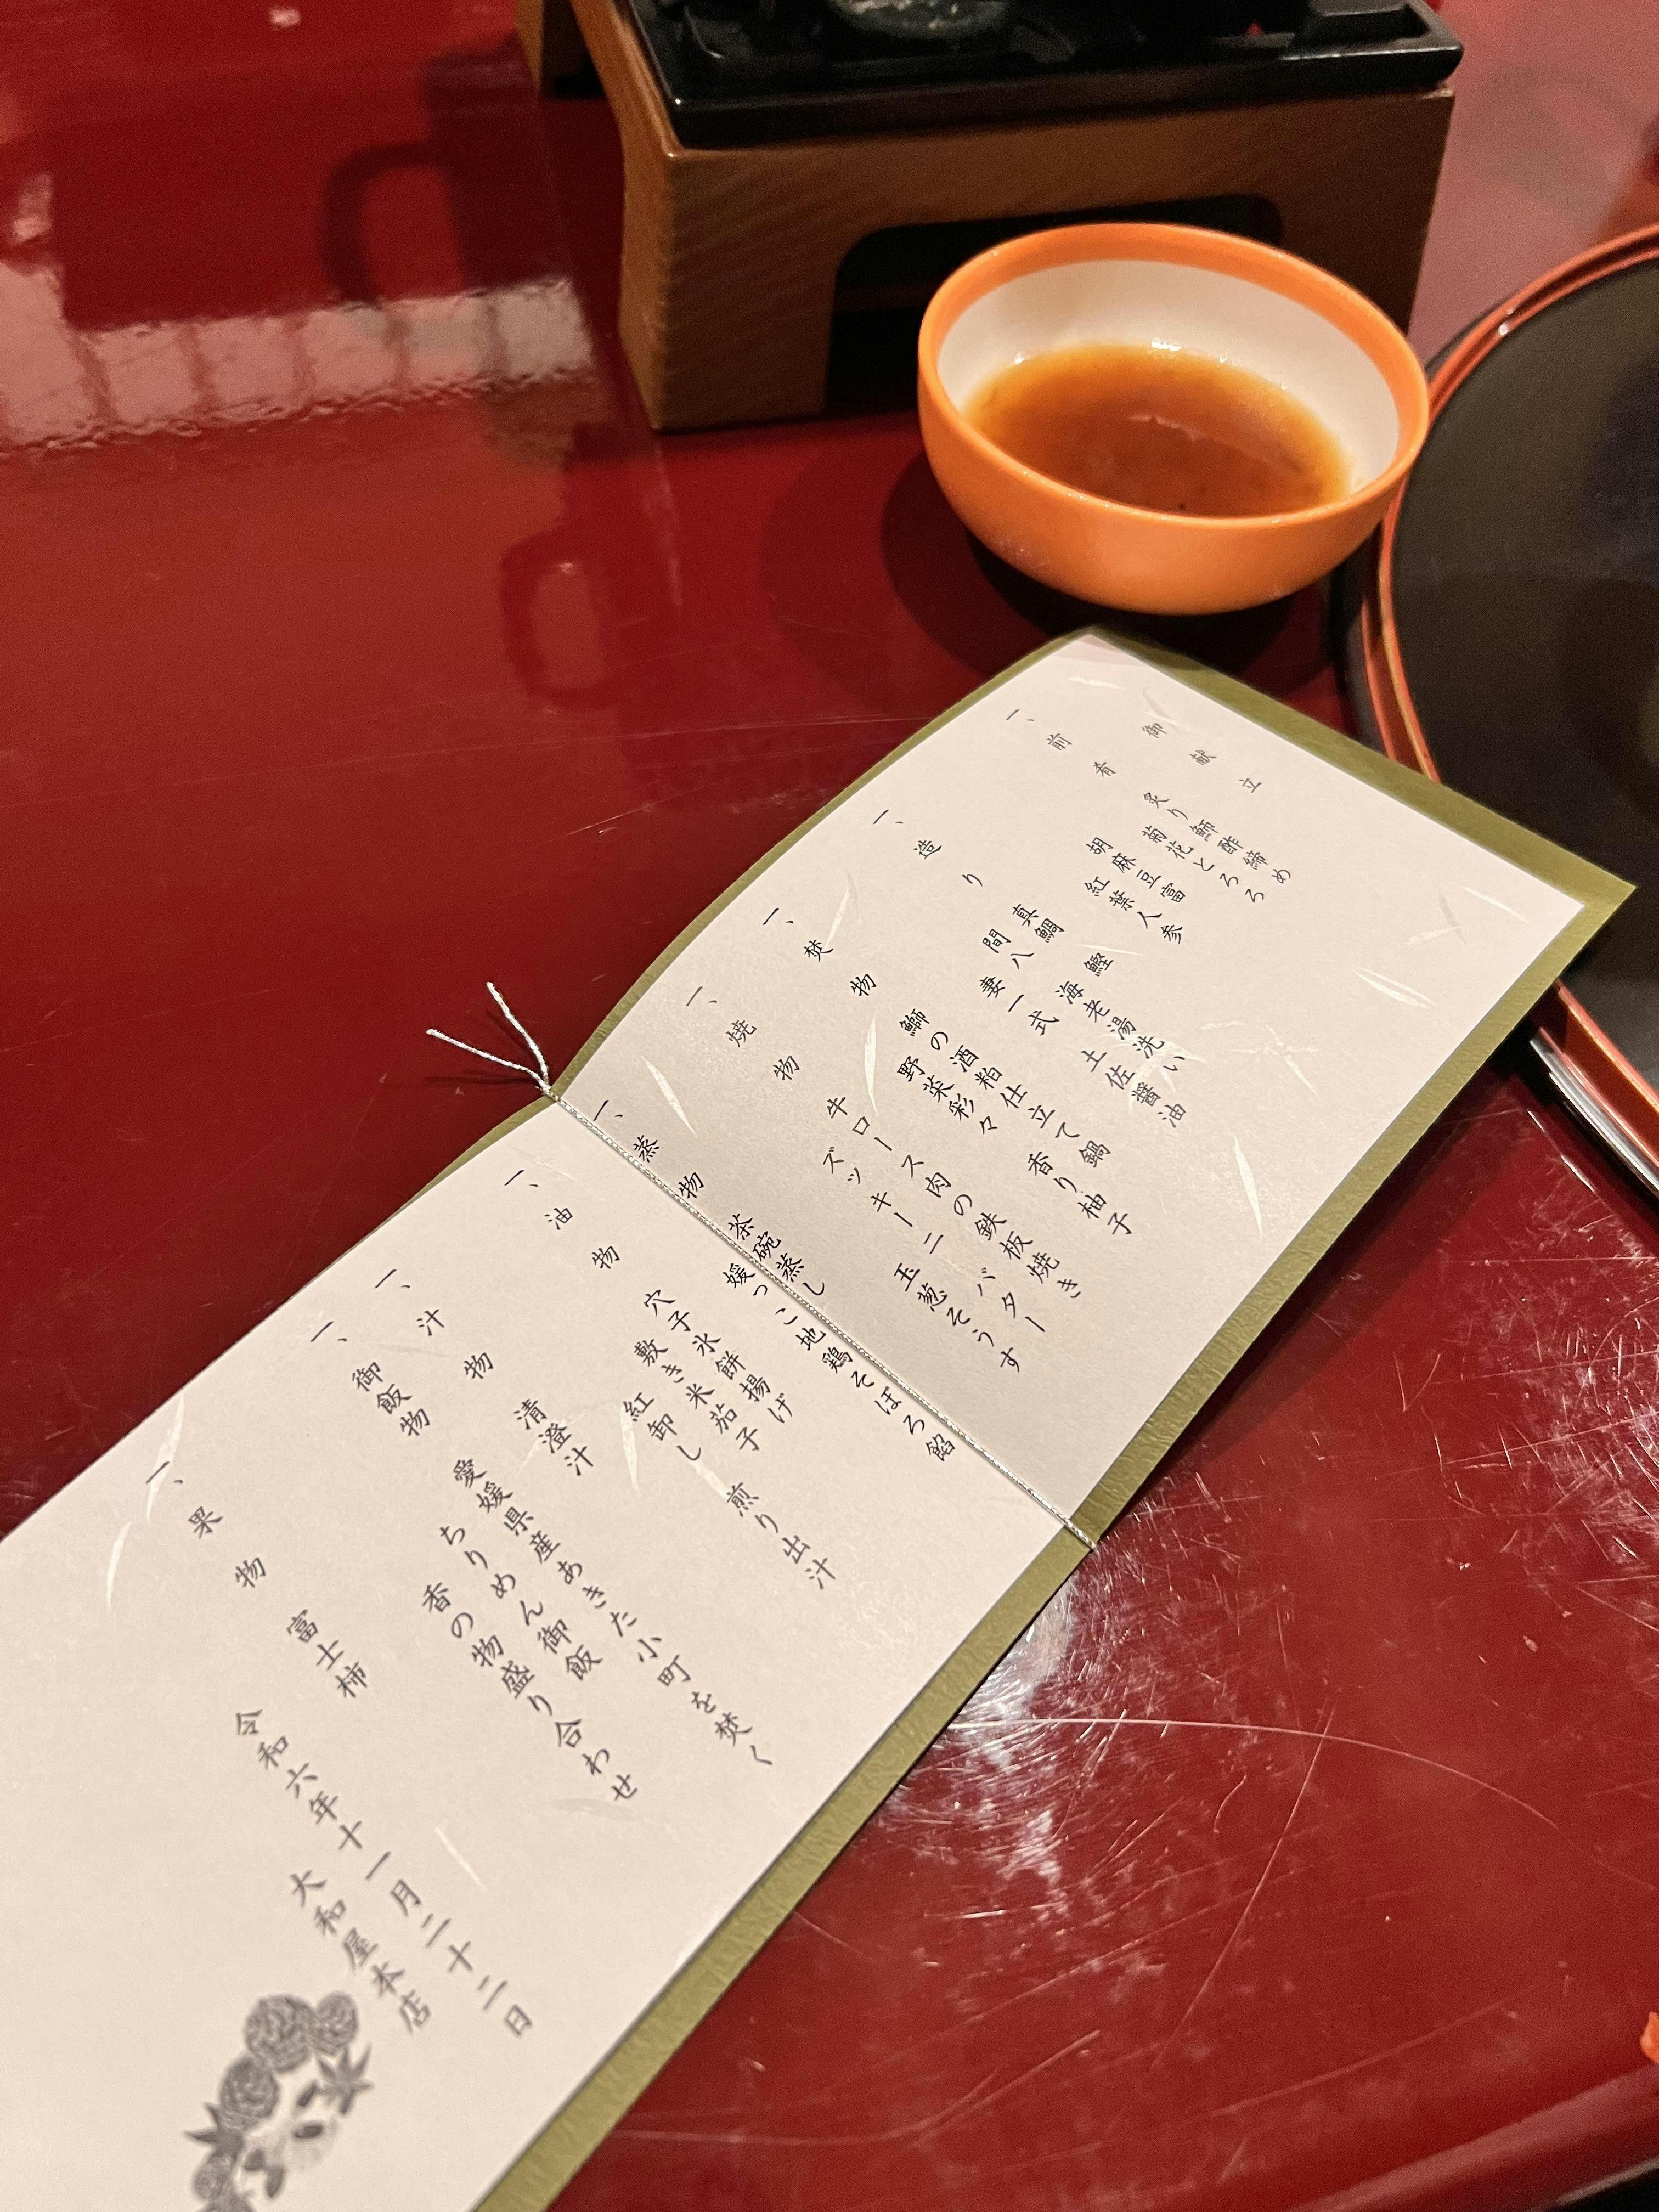 御献立
一、前肴 炙り鰤酢締め
菊花とろろ
胡麻豆富
紅葉人参
一、造り 真鯛 鰹 海老湯洗い
間八 妻一式 土佐醤油
一、焚物 鰤の酒粕仕立て鍋
野菜彩々 香り柚子
一、焼物 牛ロース肉の鉄板焼き
ズッキーニ 玉葱そうす バター
一、蒸物 茶碗蒸し
媛っこ地鶏そぼろ餡
一、油物 穴子氷餅揚げ
敷き米茄子 煎り出汁
紅卸し
一、汁物 清澄汁
一、御飯物 愛媛県産あきた小町を焚く
ちりめん御飯
香の物盛り合わせ
一、果物 富士柿
令和六年十一月二十二日
大和屋本店